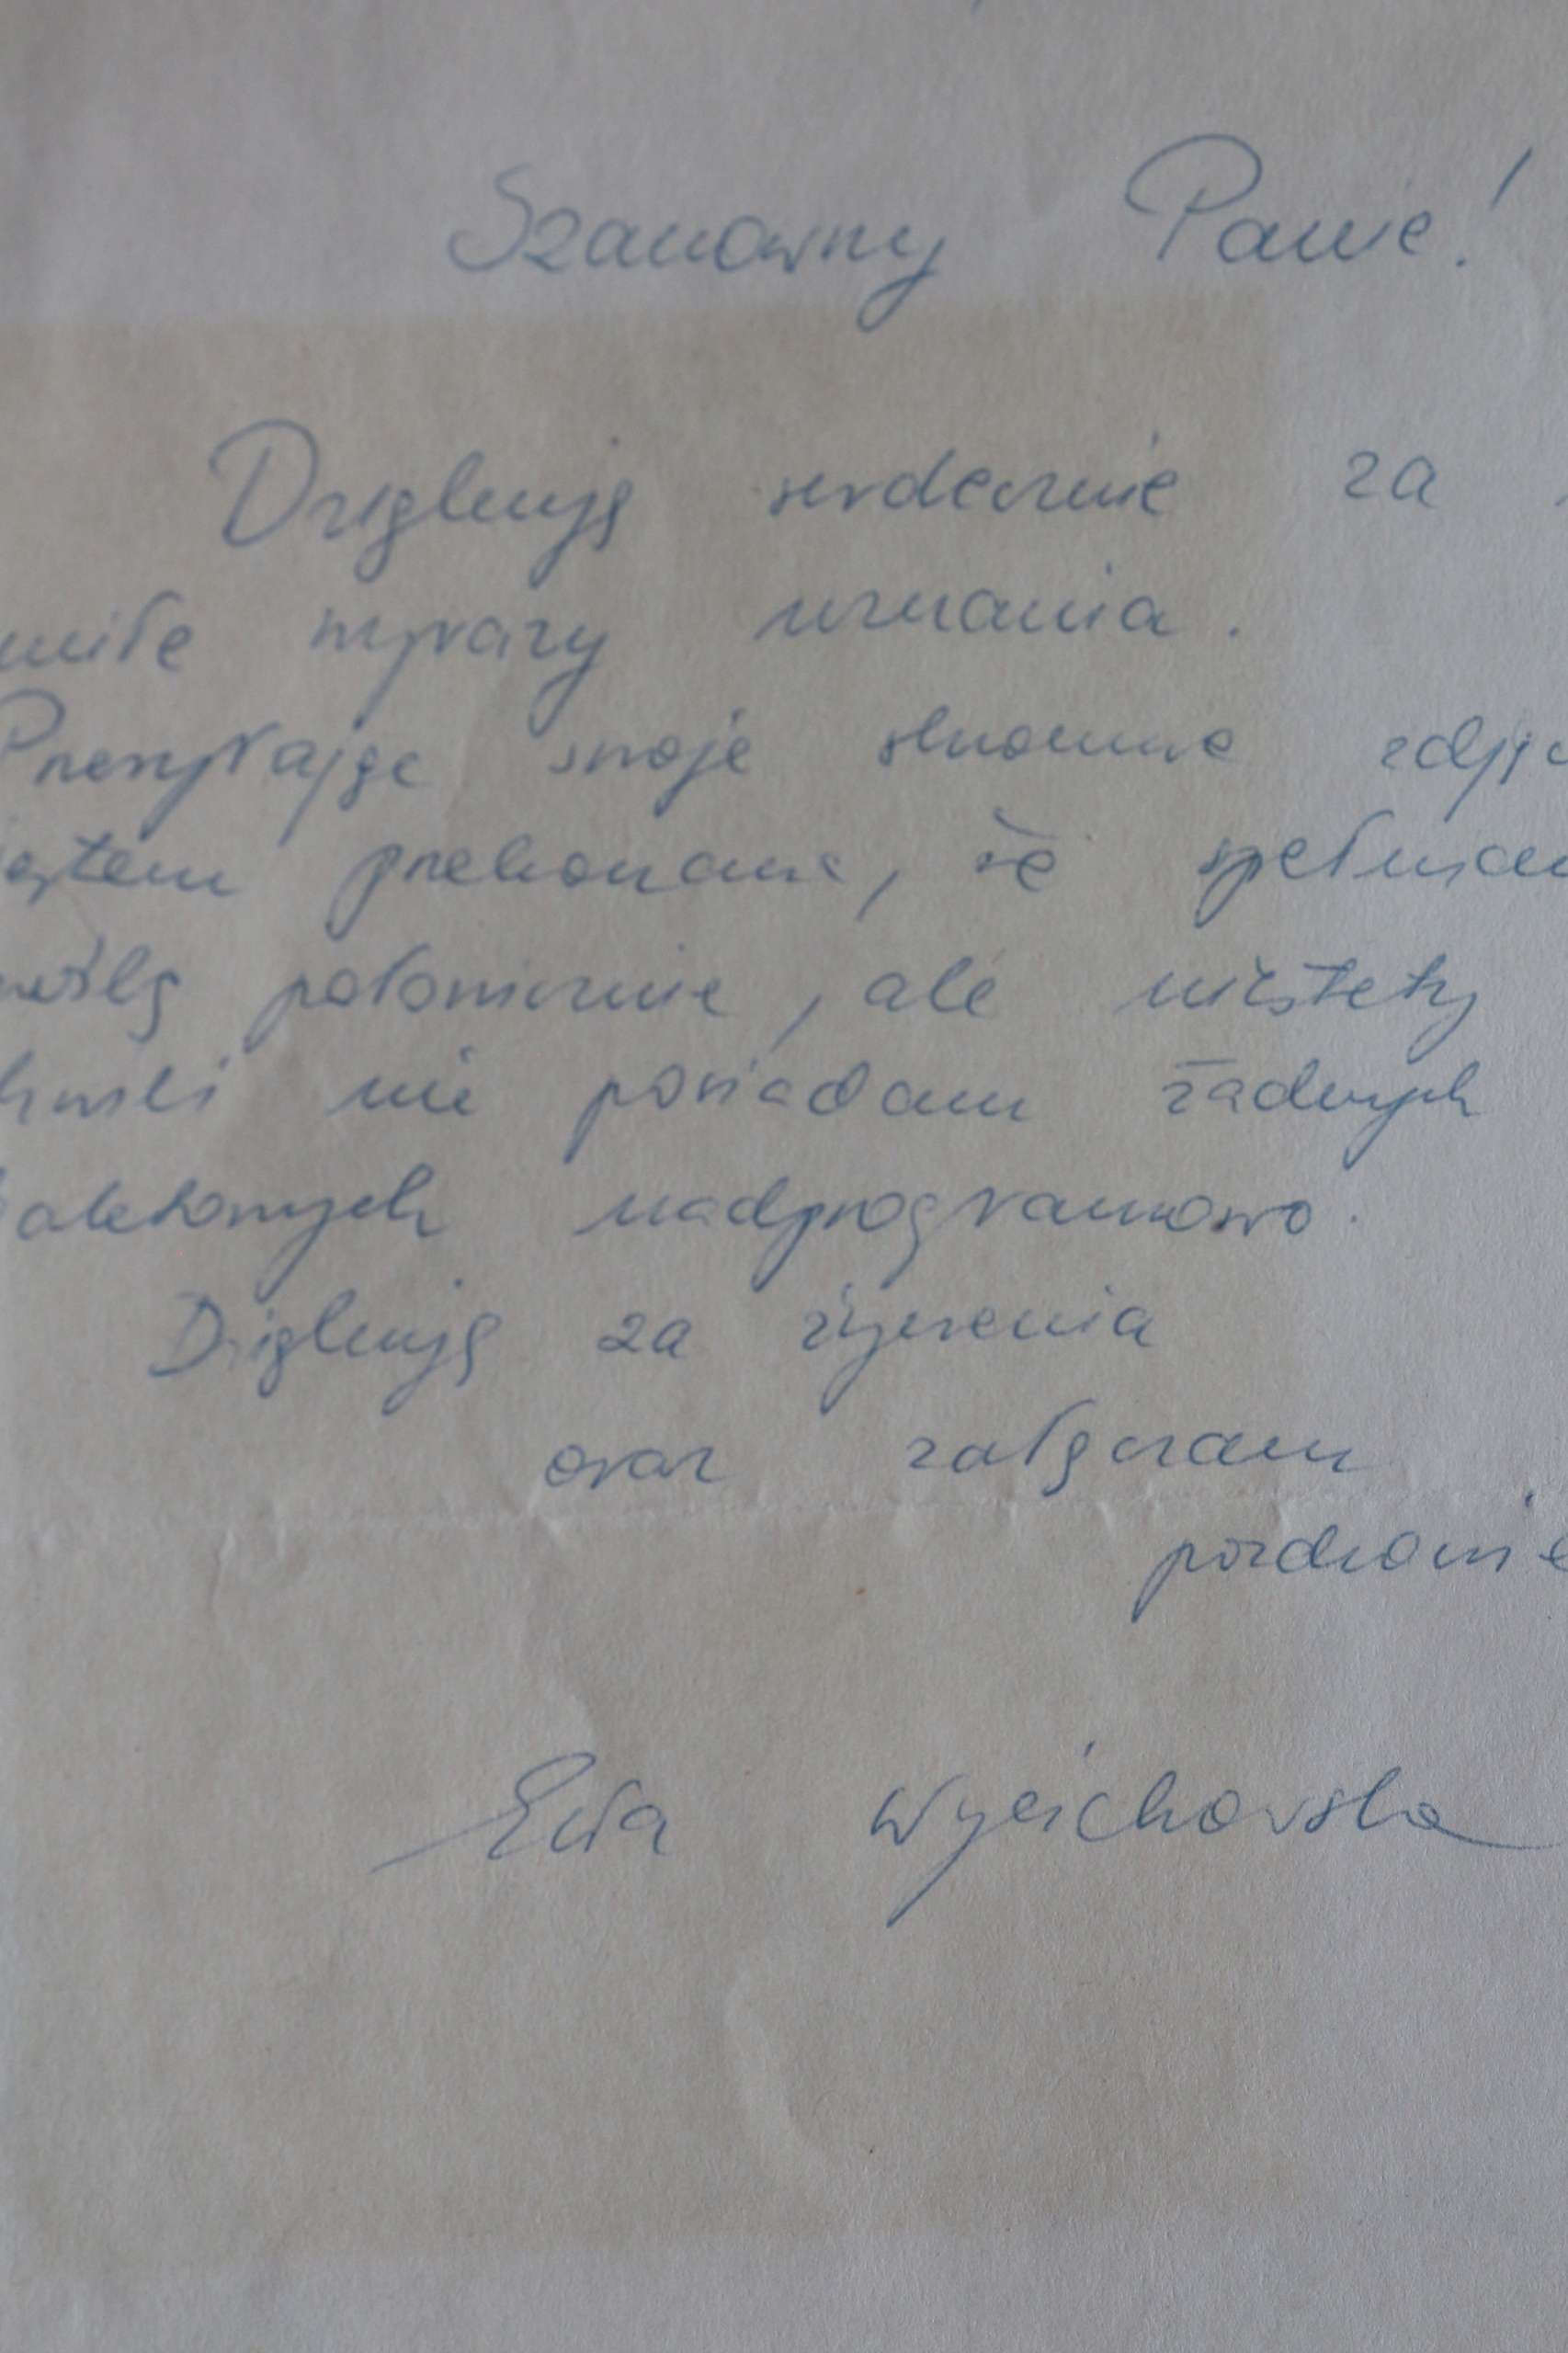 Szanowny Panie!
Dziękuję serdecznie za
miłe wyrazy uznania.
Przesyłając swoje skromne zdję
jestem przekonana, że spełniam
połowicznie, ale niestety
chwili nie posiadam żadnych
baletowych nadprogramowo.
Dziękuję za życzenia
oraz załączam
pozdrowie
Ewa Wycichowska